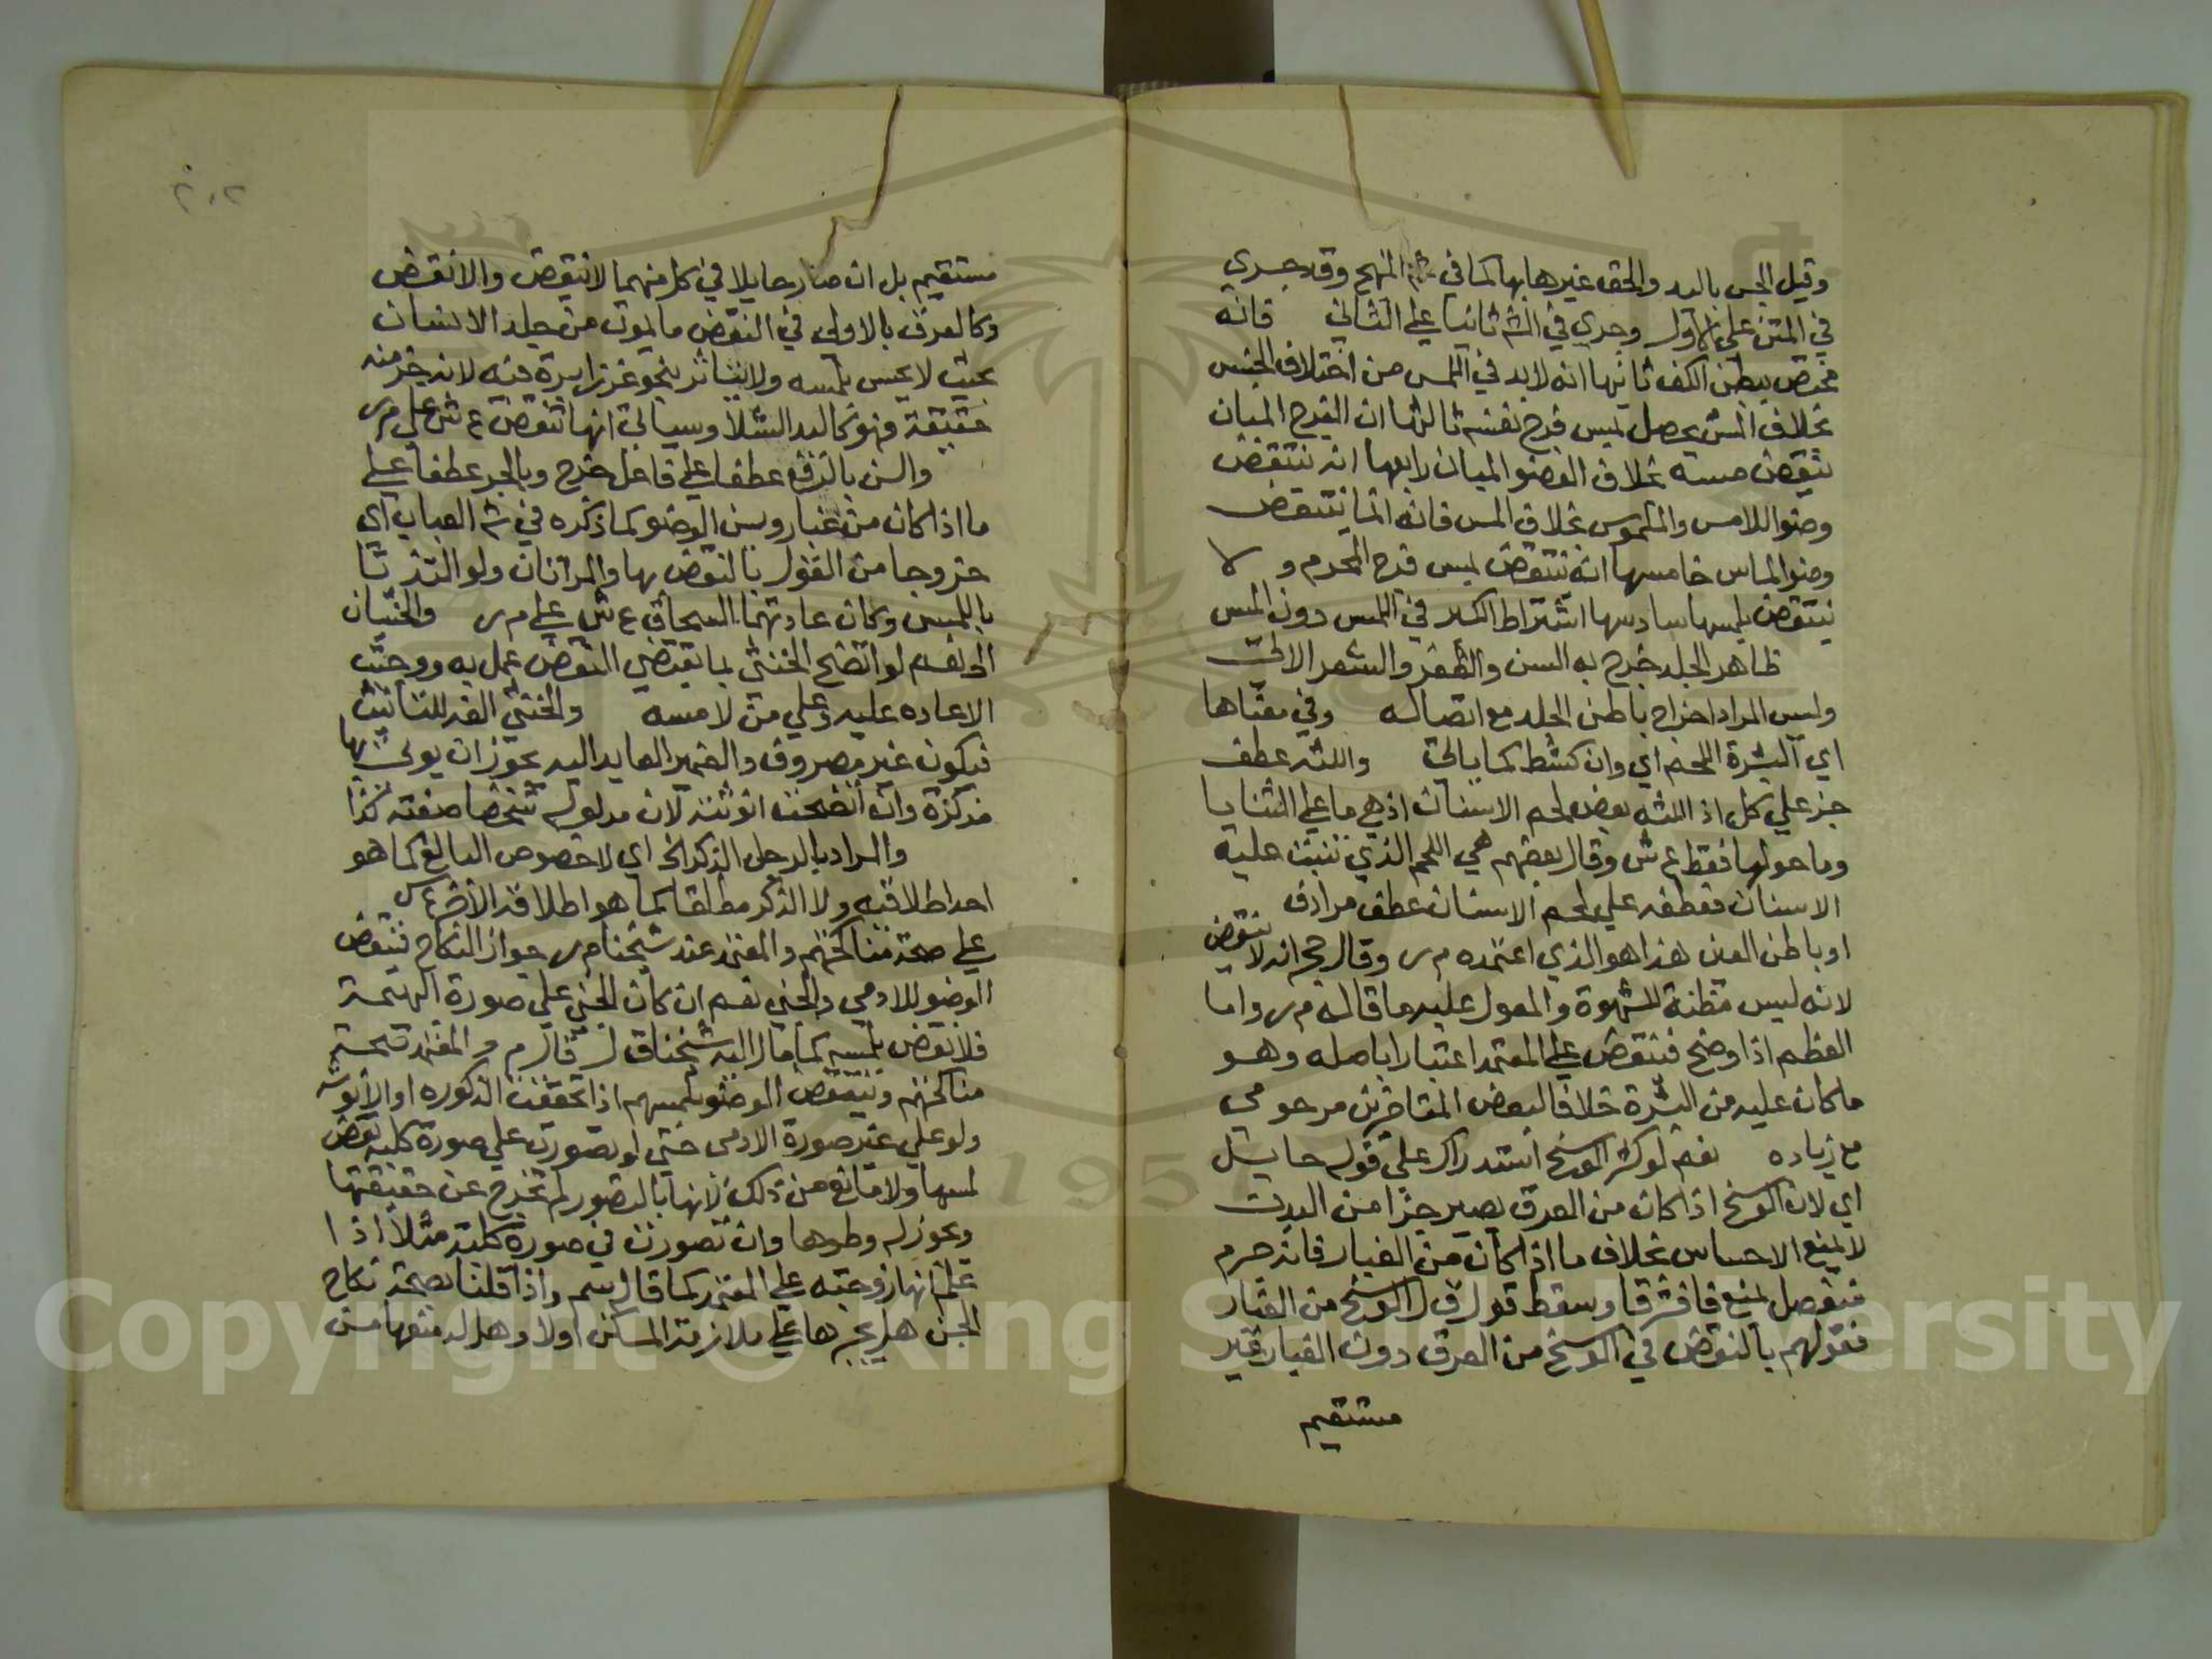 وقيل الجس باليد والحق غيرها بها كما في شرح المنهج وقد جري
في المتن علي الاول وجري في الشم ثانيا علي الثاني فانه
مختص ببطن الكف ثانيها انه لابد في اللمس من اختلاف الجنس
بخلاف المس يحصل بمس فرج نفسه ثالثها ان الفرج المبان
ينقض مسه بخلاف العضو المبان رابعها انه ينتقض
وضو اللامس والملموس بخلاف المس فانه انما ينتقض
وضو الماس خامسها انه ينتقض بمس فرج المحرم ولا
ينتقض بلمسها سادسها اشتراط الكبر في اللمس دون المس
ظاهر الجلد خرج به السن والظفر والشعر الاتي
وليس المراد اخراج باطن الجلد مع اتصاله وفي معناها
اي البشرة اللحم اي وان كشط كما ياتي واللثه عطف
جزء علي كل اذ اللثه بعض لحم الاسنان اذ هي ما علي الثنايا
وما حولها فقط ع ش وقال بعضهم هي اللحم الذي تنبت عليه
الاسنان فعطفه علي لحم الاسنان عطف مرادف
او باطن العين هذا هو الذي اعتمده م ر وقال حج انه لا ينقض
لانه ليس مظنة للشهوة والمعول عليه ما قاله م ر واما
العظم اذا وضح فينقض علي المعتمد اعتبارا باصله وهو
ما كان عليه من البشرة خلافا لبعض المتاخرين مرحومي
مع زياده نعم لو كثر الوسخ استدراك علي قوله حايل
اي لان الوسخ اذا كان من العرق يصير جزا من البدن
لا يمنع الاحساس بخلاف ما اذا كان من الغبار فانه جرم
منفصل يمنع فافترقا وسقط قول ق ل الوسخ من الغبار
فقولهم بالنقض في الوسخ من العرق دون الغبار غير
مستقيم
٢٠٢
مستقيم بل ان صار حايلا في كل منهما لا ينقض والا نقض
وكالعرق بالاولي في النقض ما يموت من جلد الانسان
بحيث لا يحس بلمسه ولا يتاثر بنحو غرز ابرة فيه لانه جزء منه
حقيقة فهو كاليد الشلا وسياتي انها تنقض ع ش علي م ر
والسن بالرفع عطفا علي فاعل خرج وبالجر عطفا علي
ما اذا كان من غبار ويسن الوضو كما ذكره في شرح العباب اي
خروجا من القول بالنقض بها والمراتان ولو التذتا
باللمس وكان عادتهما السحاق ع ش علي م ر والخنثيان
الخ نعم لو اتضح الخنثي بما يقتضي النقض عمل به ووجبت
الاعاده عليه وعلي من لامسه والخنثي الفه للتانيث
فيكون غير مصروف والضمير العايد اليه يجوز ان يوتي بها
مذكرة وان اتضحت انوثته لان مدلوله شخصا صفته كذا
والمراد بالرجل الذكر الخ اي لا خصوص البالغ كما هو
احد اطلاقيه ولا الذكر مطلقا كما هو اطلاقه الاخر
علي صحة مناكحتهم والمعتمد عند شيخنا م ر جواز النكاح فينقض
الوضو للادمي والجني نعم ان كان الجني علي صورة البهيمة
فلا نقض بلمسه كما مال اليه شيخنا ق ل قال م ر والمعتمد صحة
مناكحتهم وينتقض الوضو بلمسهم اذا تحققت الذكوره او الانوثه
ولو علي غير صورة الادمي حتي لو تصورت علي صورة كلبه نقض
لمسها ولا مانع من ذلك لانها بالتصور لم تخرج عن حقيقتها
ويجوز له وطوها وان تصورت في صورة كلبة مثلا اذا
علم انها زوجته علي المعتمد كما قال سم واذا قلنا بصحة نكاح
الجن هل يجبرها علي ملازمة المسكن اولا وهل له منعها من